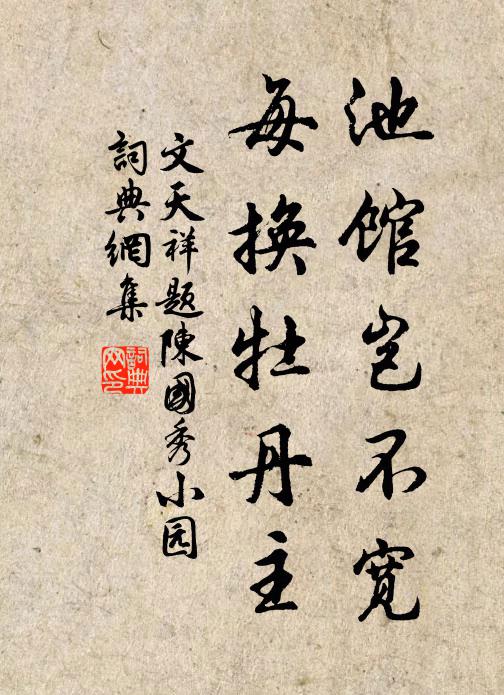 池馆岂不寬
每换牡丹主
文天祥题陳國秀小园
詞典網集
詞典
网印